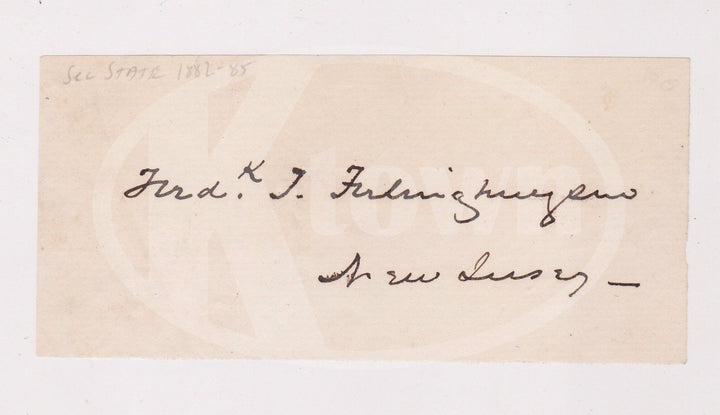 Sec State 1882-85
Fredk. T. Frelinghuysen
New Jersey –
Ktown